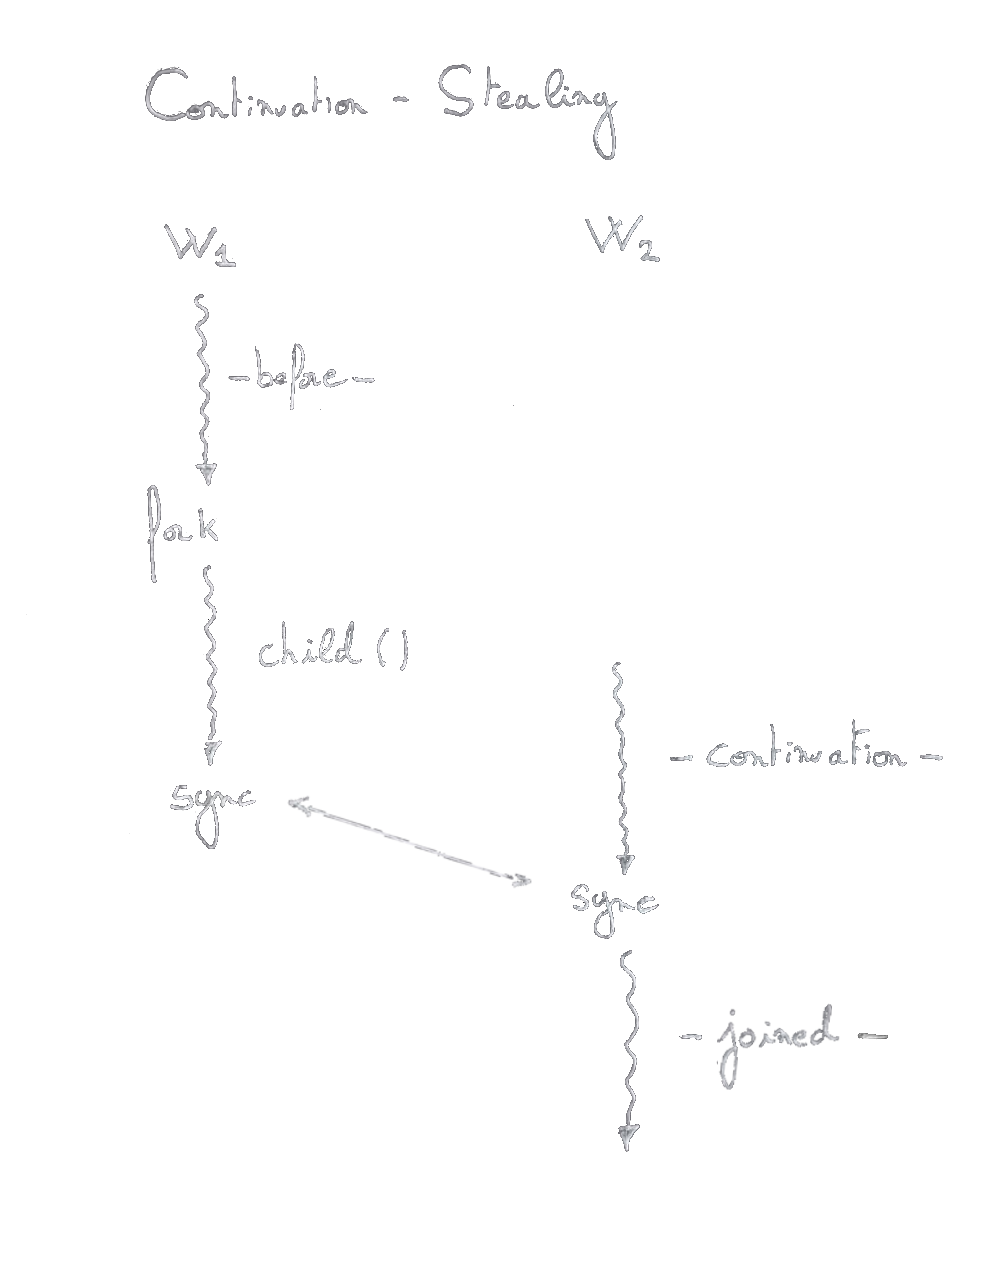 Continuation - Stealing
W1
W2
- before -
fork
child ()
- continuation -
sync
sync
- joined -